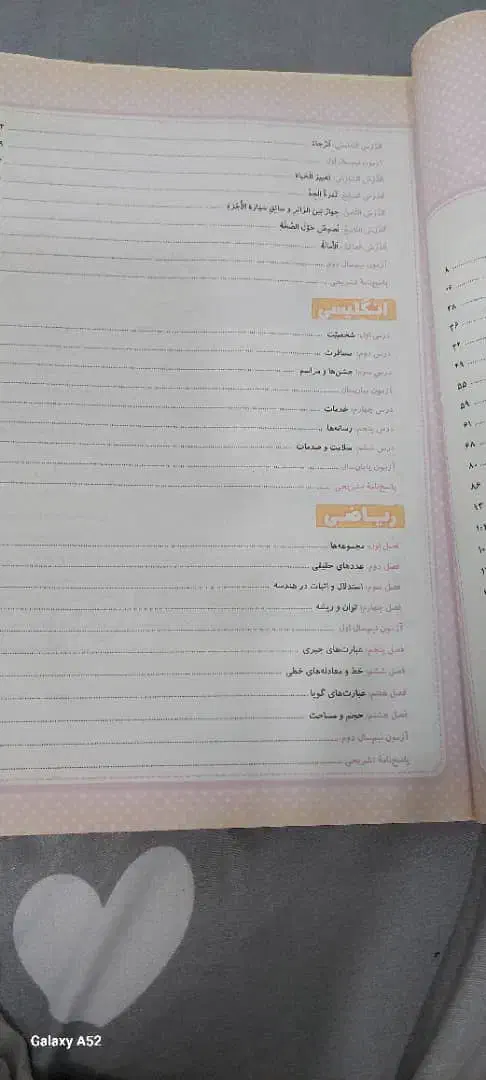 الدَّرْسُ الخامِسُ: اَلرَّجاءُ
آزمون نیم‌سال اول
الدَّرْسُ السّادِسُ: تَغییرُ الحَیاة
الدَّرْسُ السّابِعُ: ثَمَرَةُ الجِدِّ
الدَّرْسُ الثّامِنُ: حِوارٌ بَینَ الزّائِرِ و سائِقِ سَیّارَةِ الأُجْرَةِ
الدَّرْسُ التّاسِعُ: نُصوصٌ حَوْلَ الصِّحَّةِ
الدَّرْسُ العاشِرُ: اَلْأَمانَةُ
آزمون نیم‌سال دوم
پاسخ‌نامهٔ تشریحی
انگلیسی
درس اول: شخصیّت
درس دوم: مسافرت
درس سوم: جشن‌ها و مراسم
آزمون میان‌سال
درس چهارم: خدمات
درس پنجم: رسانه‌ها
درس ششم: سلامت و صدمات
آزمون پایان‌سال
پاسخ‌نامهٔ تشریحی
ریاضی
فصل اول: مجموعه‌ها
فصل دوم: عددهای حقیقی
فصل سوم: استدلال و اثبات در هندسه
فصل چهارم: توان و ریشه
آزمون نیم‌سال اول
فصل پنجم: عبارت‌های جبری
فصل ششم: خط و معادله‌های خطی
فصل هفتم: عبارت‌های گویا
فصل هشتم: حجم و مساحت
آزمون نیم‌سال دوم
پاسخ‌نامهٔ تشریحی
۸
۲۸
۳۶
۴۲
۴۹
۵۵
۵۹
۶۱
۶۸
۸۰
۸۶
Galaxy A52